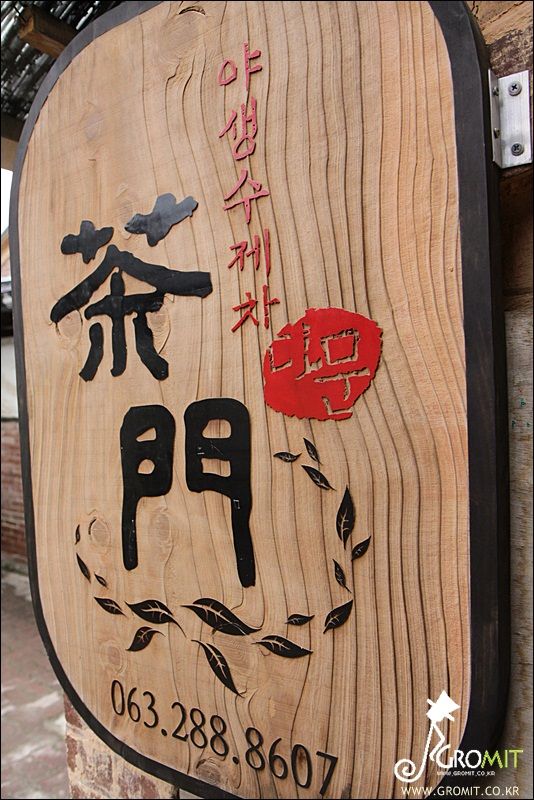 야생수제차
다문
茶門
063.288.8607
GROMIT
WWW.GROMIT.CO.KR
WWW.GROMIT.CO.KR